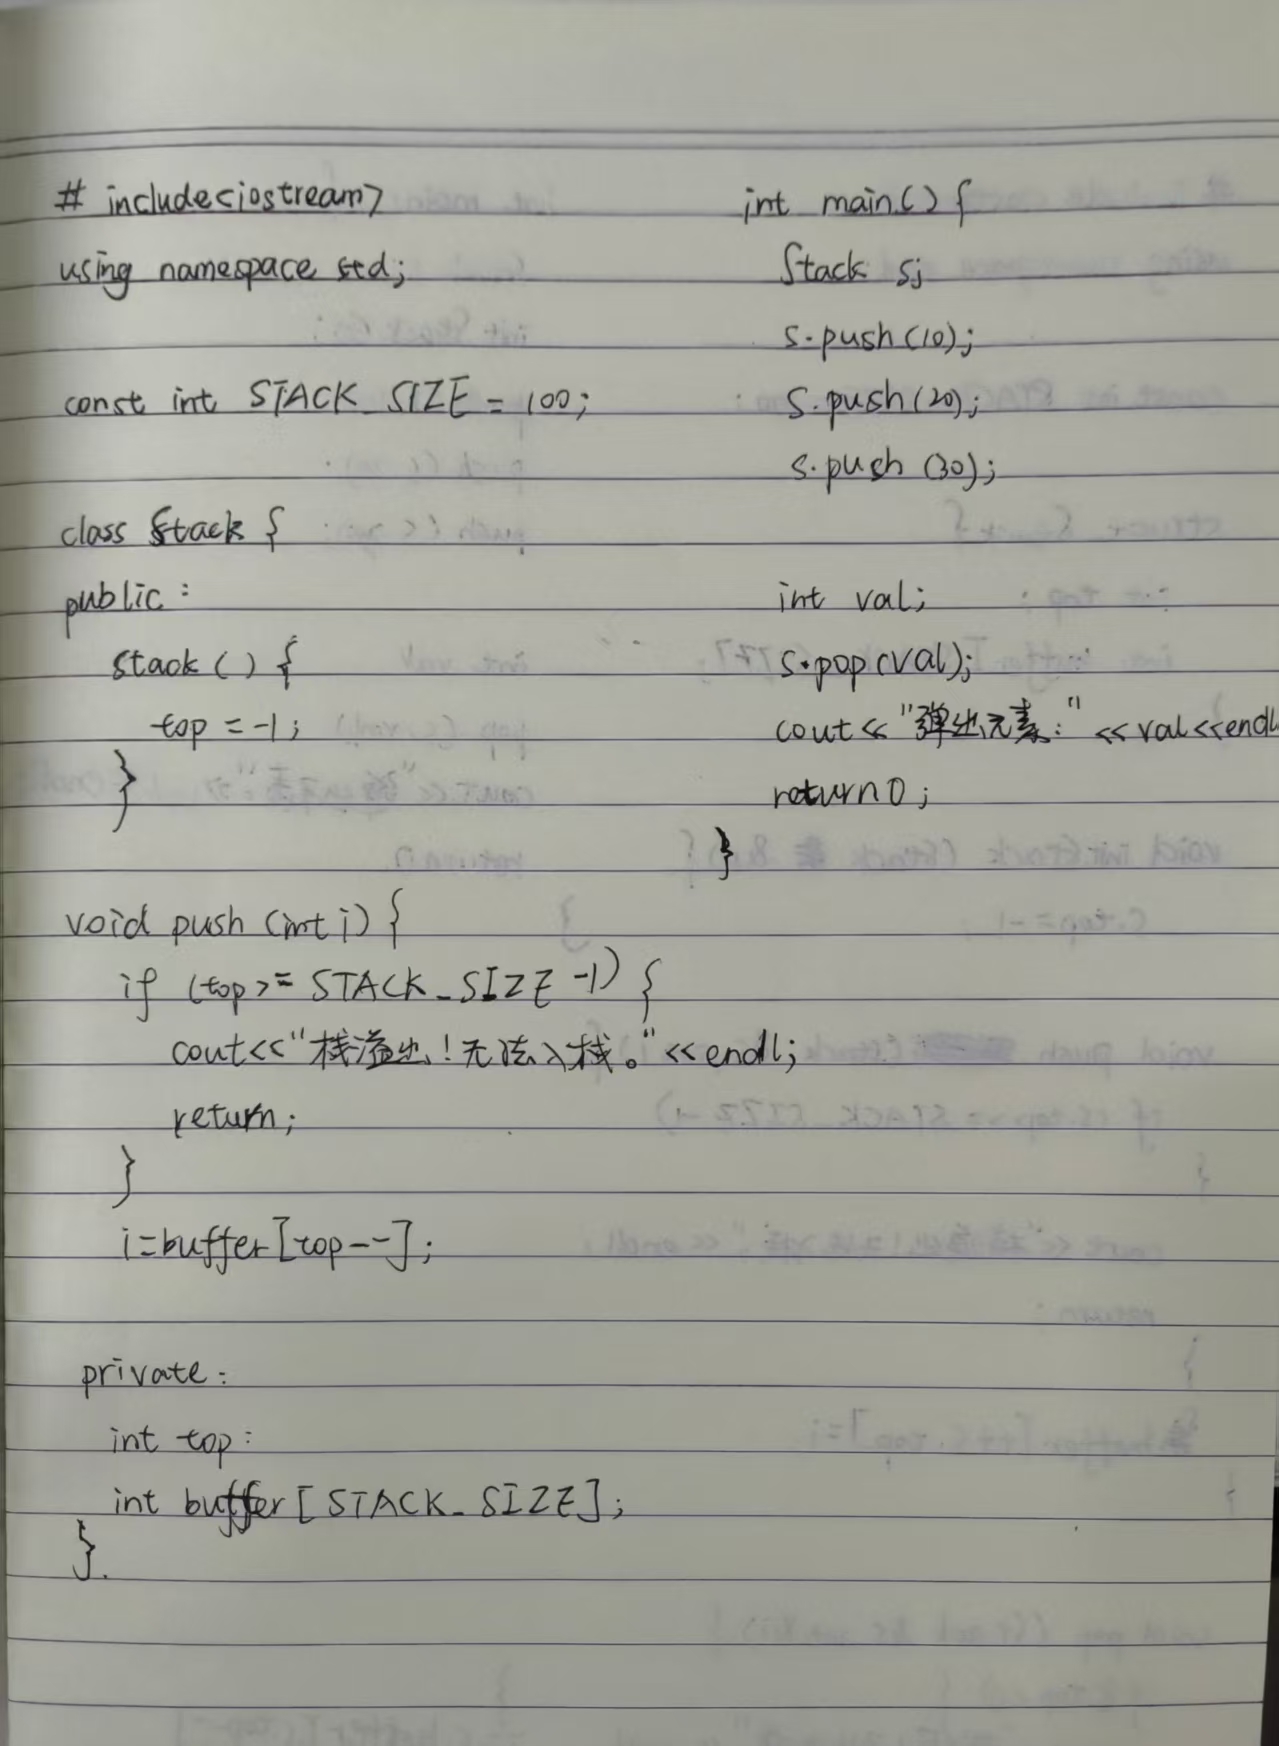 # include<iostream>
using namespace std;
const int STACK_SIZE = 100;
class Stack {
public:
stack() {
top = -1;
}
void push (int i) {
if (top >= STACK_SIZE -1) {
cout<<"栈溢出!无法入栈。"<<endl;
return;
}
i=buffer[top--];
private:
int top:
int buffer[STACK_SIZE];
}.
int main() {
Stack s;
s.push(10);
s.push(20);
s.push(30);
int val;
s.pop(val);
cout<<"弹出元素:"<<val<<endl
return 0;
}